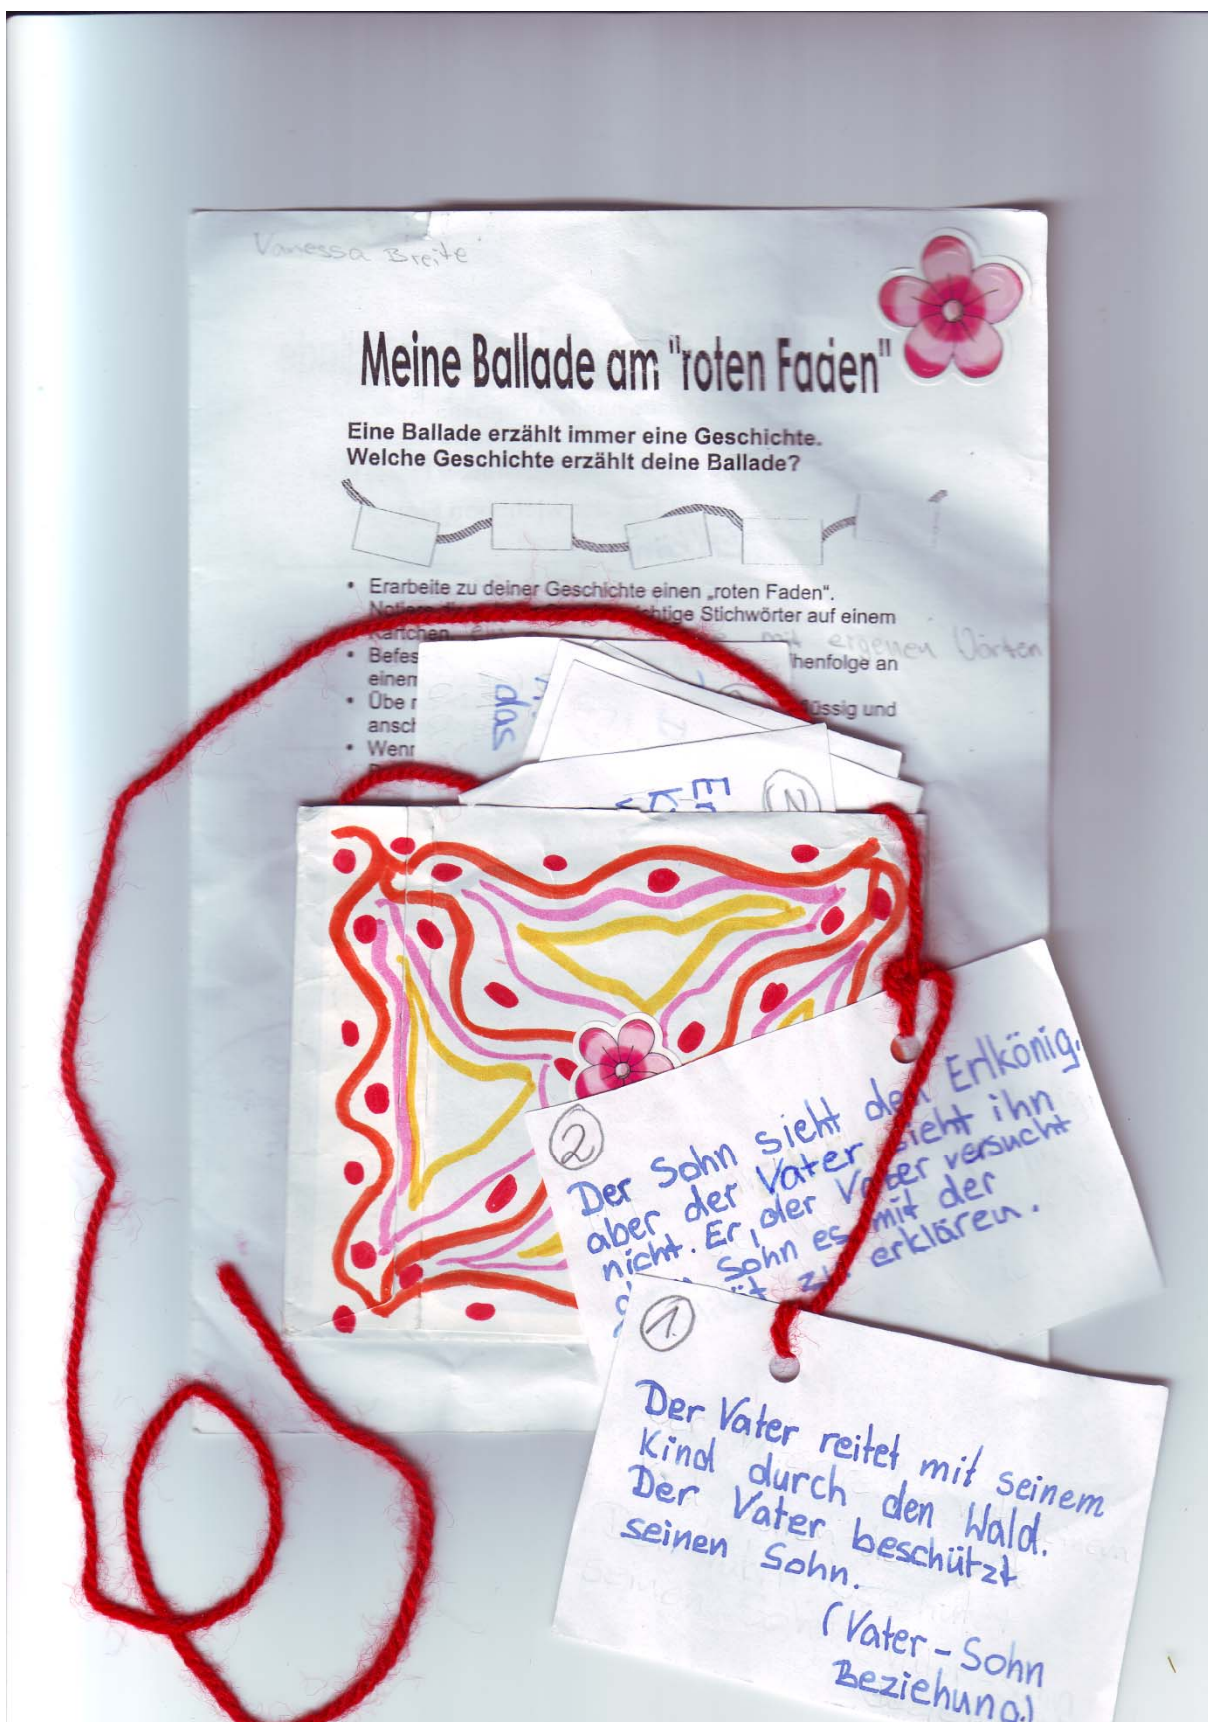 Vanessa Breite
Meine Ballade am "roten Faden"
Eine Ballade erzählt immer eine Geschichte.
Welche Geschichte erzählt deine Ballade?
• Erarbeite zu deiner Geschichte einen „roten Faden“.
Stichwörter auf einem
Kärtchen mit eigenen Worten
• Befes henfolge an
einem
• Übe r üssig und
ansch
• Wenn
das
2
Er
K
2
Der Sohn sieht den Erlkönig,
aber der Vater sieht ihn
nicht. Er, der Vater versucht
Sohn es mit der
zu erklären.
1.
Der Vater reitet mit seinem
Kind durch den Wald.
Der Vater beschützt
seinen Sohn.
(Vater-Sohn
Beziehung)